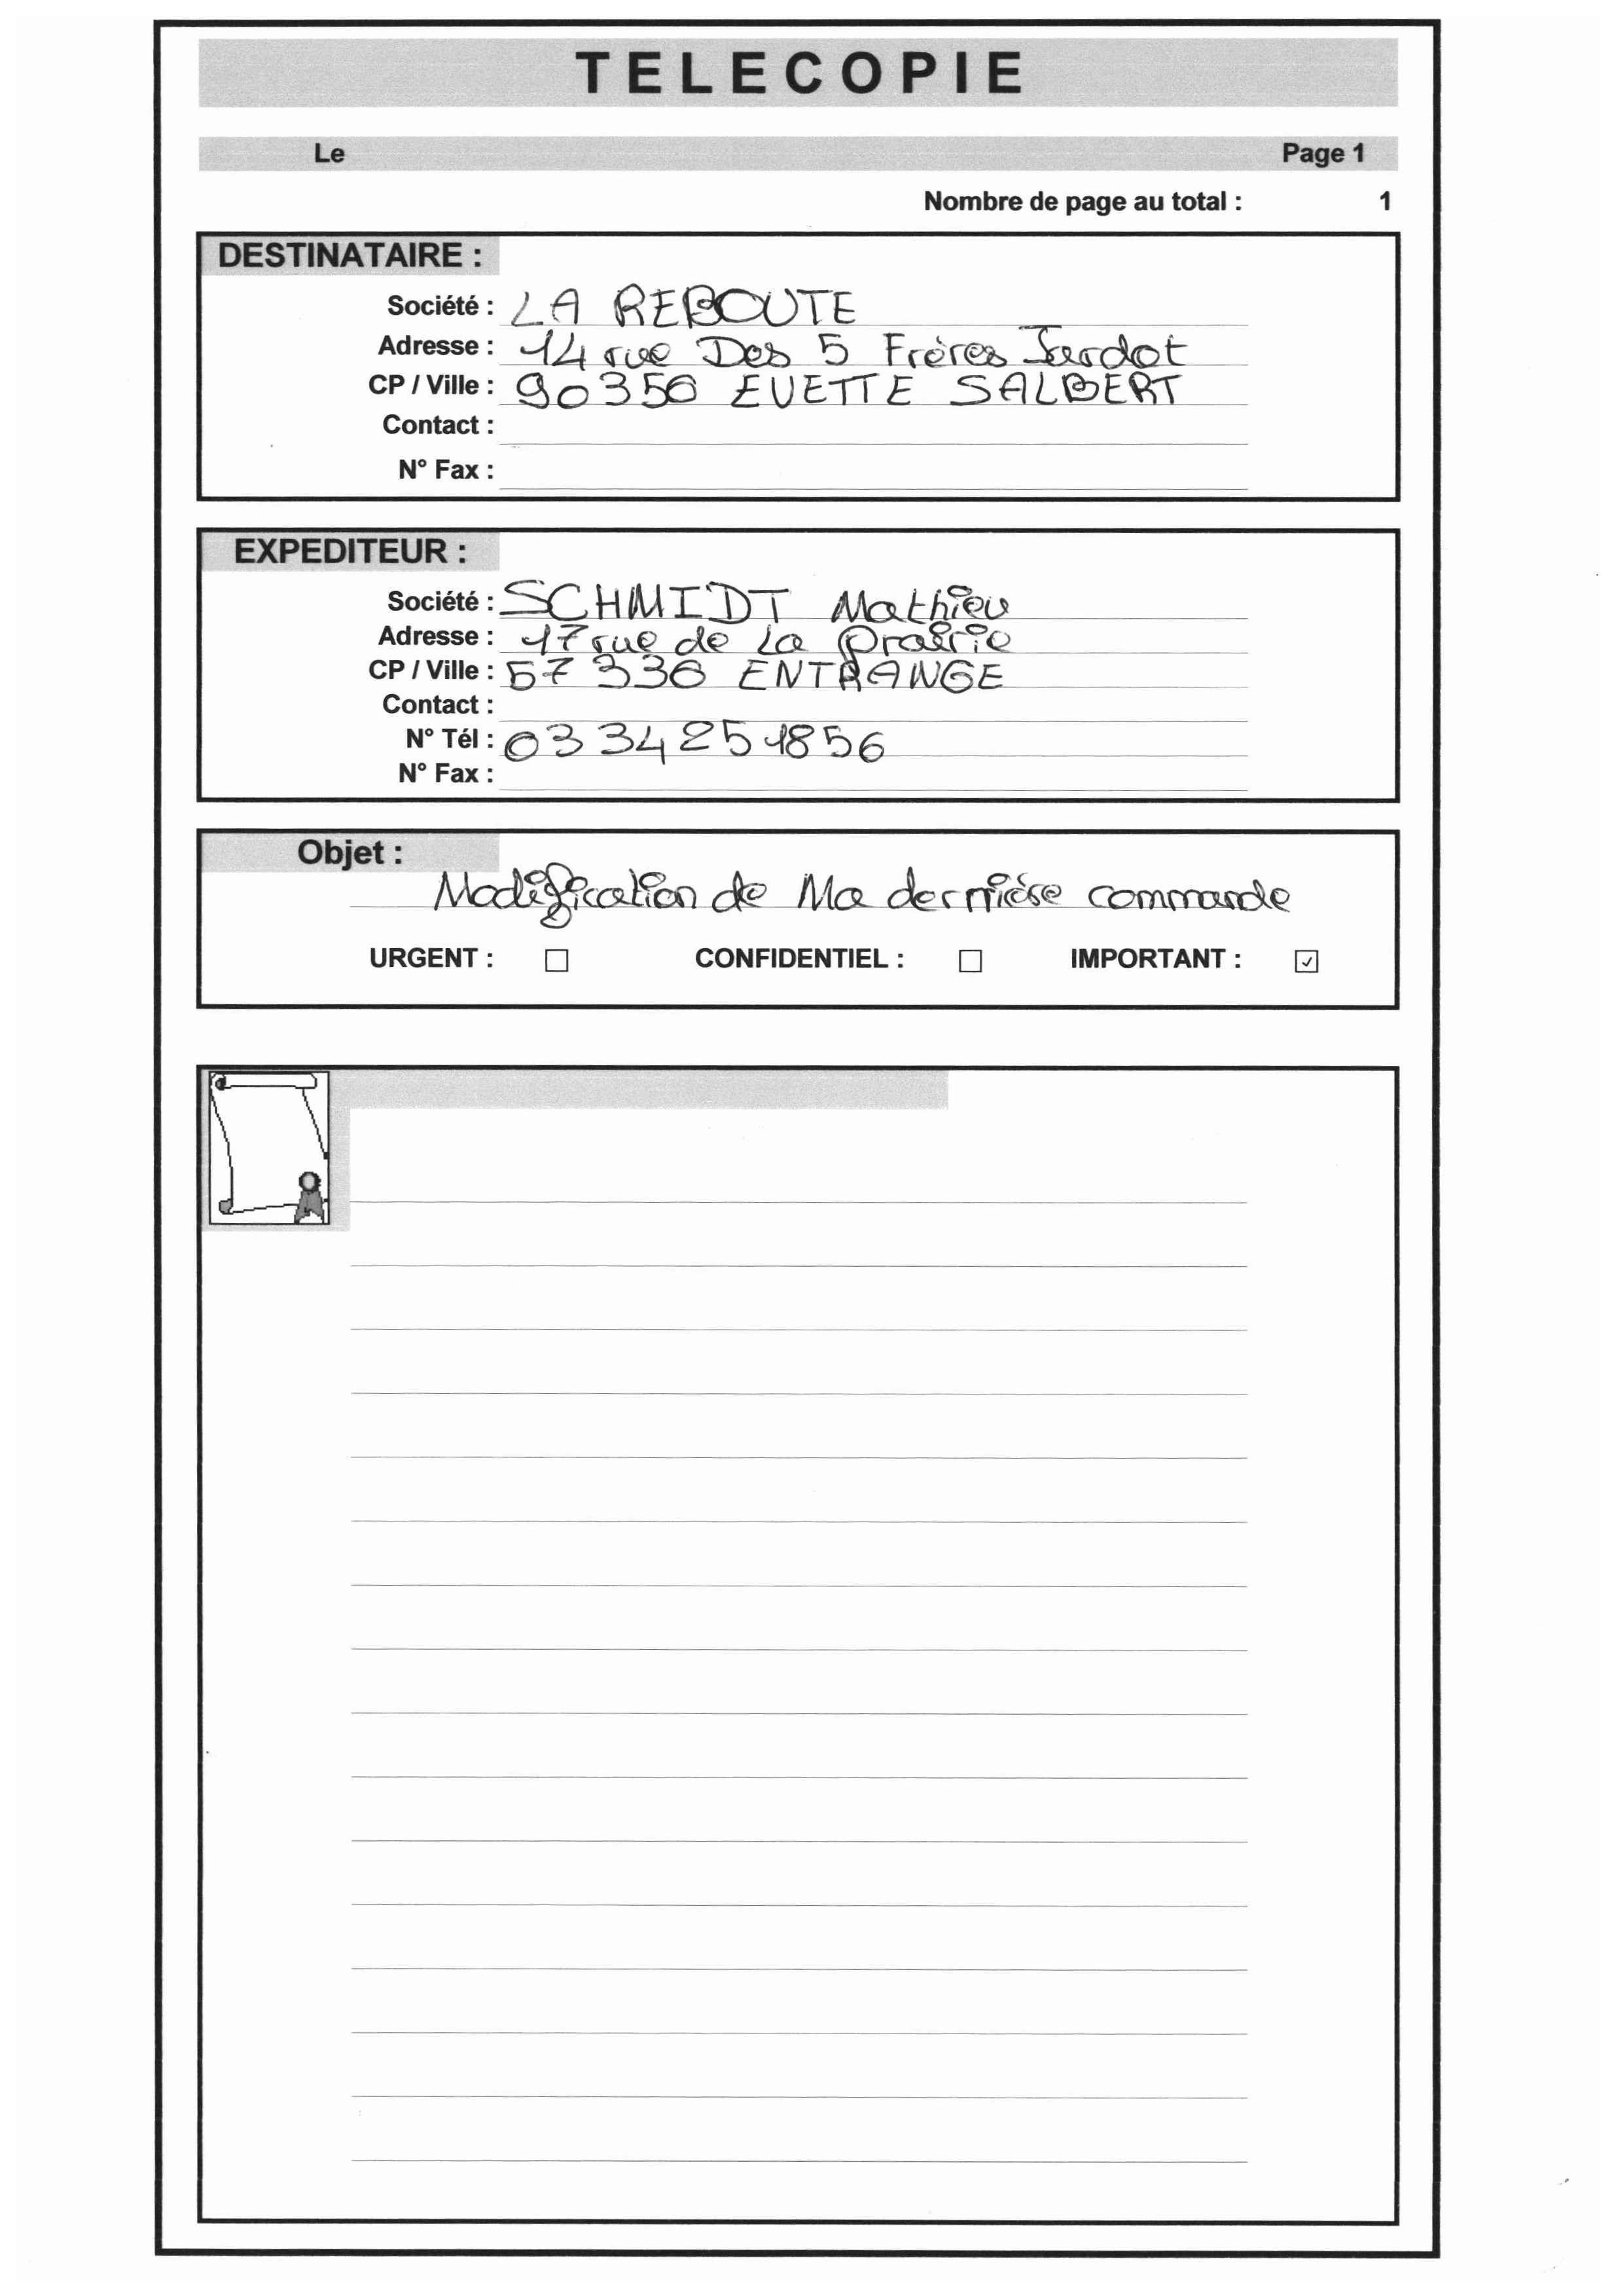 TELECOPIE
Le Page 1
Nombre de page au total : 1
DESTINATAIRE :
Société : LA REBOUTE
Adresse : 14 rue Des 5 Frères
CP / Ville : 90350 EVETTE SALBERT
Contact :
N° Fax :
EXPEDITEUR :
Société : SCHMIDT Mathieu
Adresse : 17 rue de La prairie
CP / Ville : 57330 ENTRANGE
Contact :
N° Tél : 0334251856
N° Fax :
Objet :
Modification de Ma dernière commande
URGENT : CONFIDENTIEL : IMPORTANT : ✓